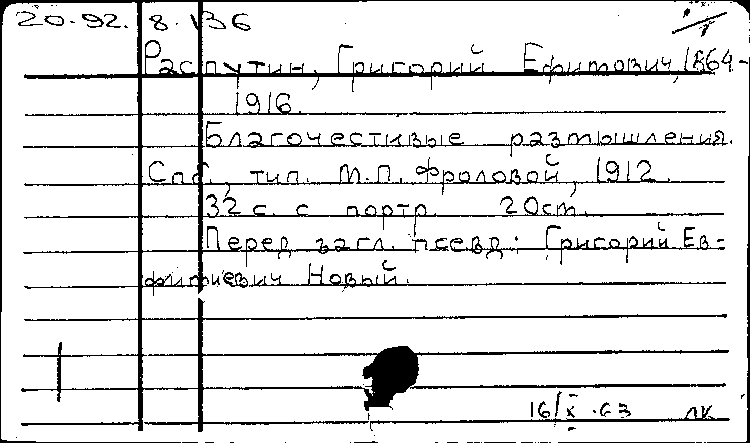 20.92. 8.136
Распутин, Григорий Ефимович, 1864-
1916.
Благочестивые размышления.
Спб., тип. М.П. Фроловой, 1912.
32 с. с портр. 20 cm.
Перед загл. псевд.: Григорий Ев-
фимиевич Новый.
16/X.63 ЛК